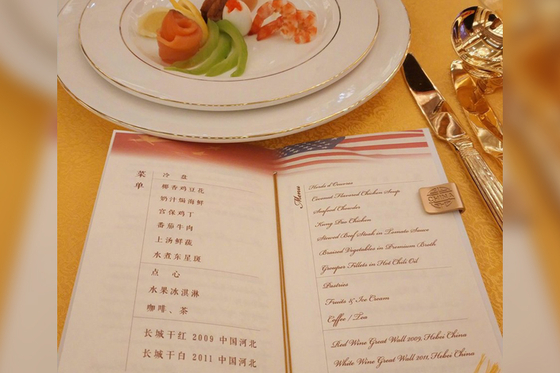 菜单
冷 盘
椰香鸡豆花
奶汁焗海鲜
宫保鸡丁
番茄牛肉
上汤鲜蔬
水煮东星斑
点 心
水果冰淇淋
咖啡、茶
长城干红 2009 中国河北
长城干白 2011 中国河北
Menu
Hors d'Oeuvre
Coconut Flavored Chicken Soup
Seafood Chowder
Kung Pao Chicken
Stewed Beef Steak in Tomato Sauce
Braised Vegetables in Premium Broth
Grouper Fillets in Hot Chili Oil
Pastries
Fruits & Ice Cream
Coffee / Tea
Red Wine Great Wall 2009, Hebei China
White Wine Great Wall 2011, Hebei China